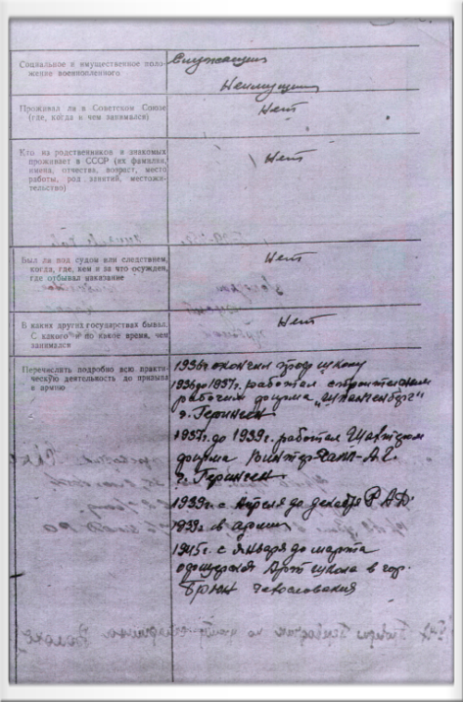 Социальное и имущественное поло-
жение военнопленного
Служащий
Неимущий
Проживал ли в Советском Союзе
(где, когда и чем занимался)
Нет
Кто из родственников и знакомых
проживает в СССР (их фамилия,
имена, отчества, возраст, место
работы, род занятий, местожи-
тельство)
Нет
Был ли под судом или следствием,
когда, где, кем и за что осужден,
где отбывал наказание
Нет
В каких других государствах бывал.
С какого и по какое время, чем
занимался
Нет
Перечислить подробно всю практи-
ческую деятельность до призыва
в армию
1936г окончил профшколу
1936 до 1937г. работал строительным
рабочим фирма
г. Геринген
1937г. до 1939г. работал
фирма А.Г.
г. Геринген
1939г. с апреля до декабря Р.А.Д.
1939г. в армии
1945г. с января до марта
офицерская Арт школа в гор.
Брюн